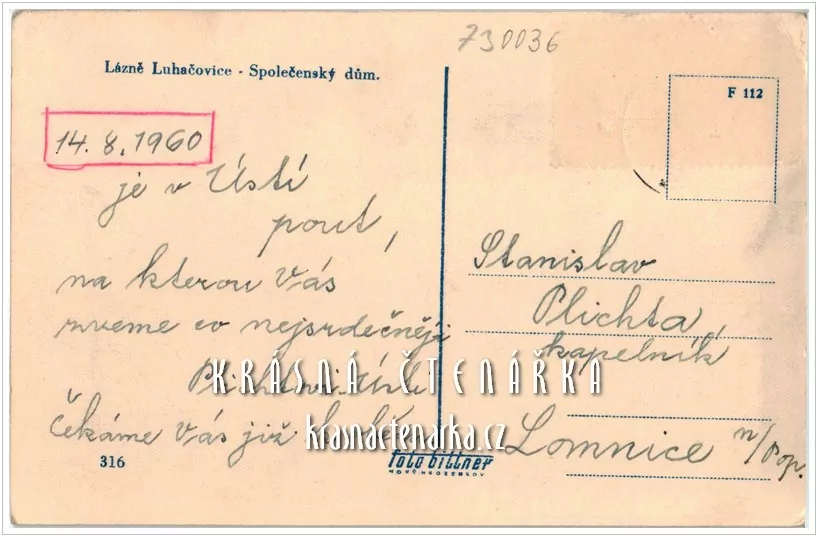 730036
Lázně Luhačovice - Společenský dům.
F 112
14. 8. 1960
je v Ústí
pout,
na kterou Vás
zveme co nejsrdečněji
Čekáme Vás již
Stanislav
Plichta,
kapelník
Lomnice n/Pop.
KRÁSNÁ ČTENÁŘKA
krasnactenarka.cz
316
foto bittner
NOVÝ HROZENKOV